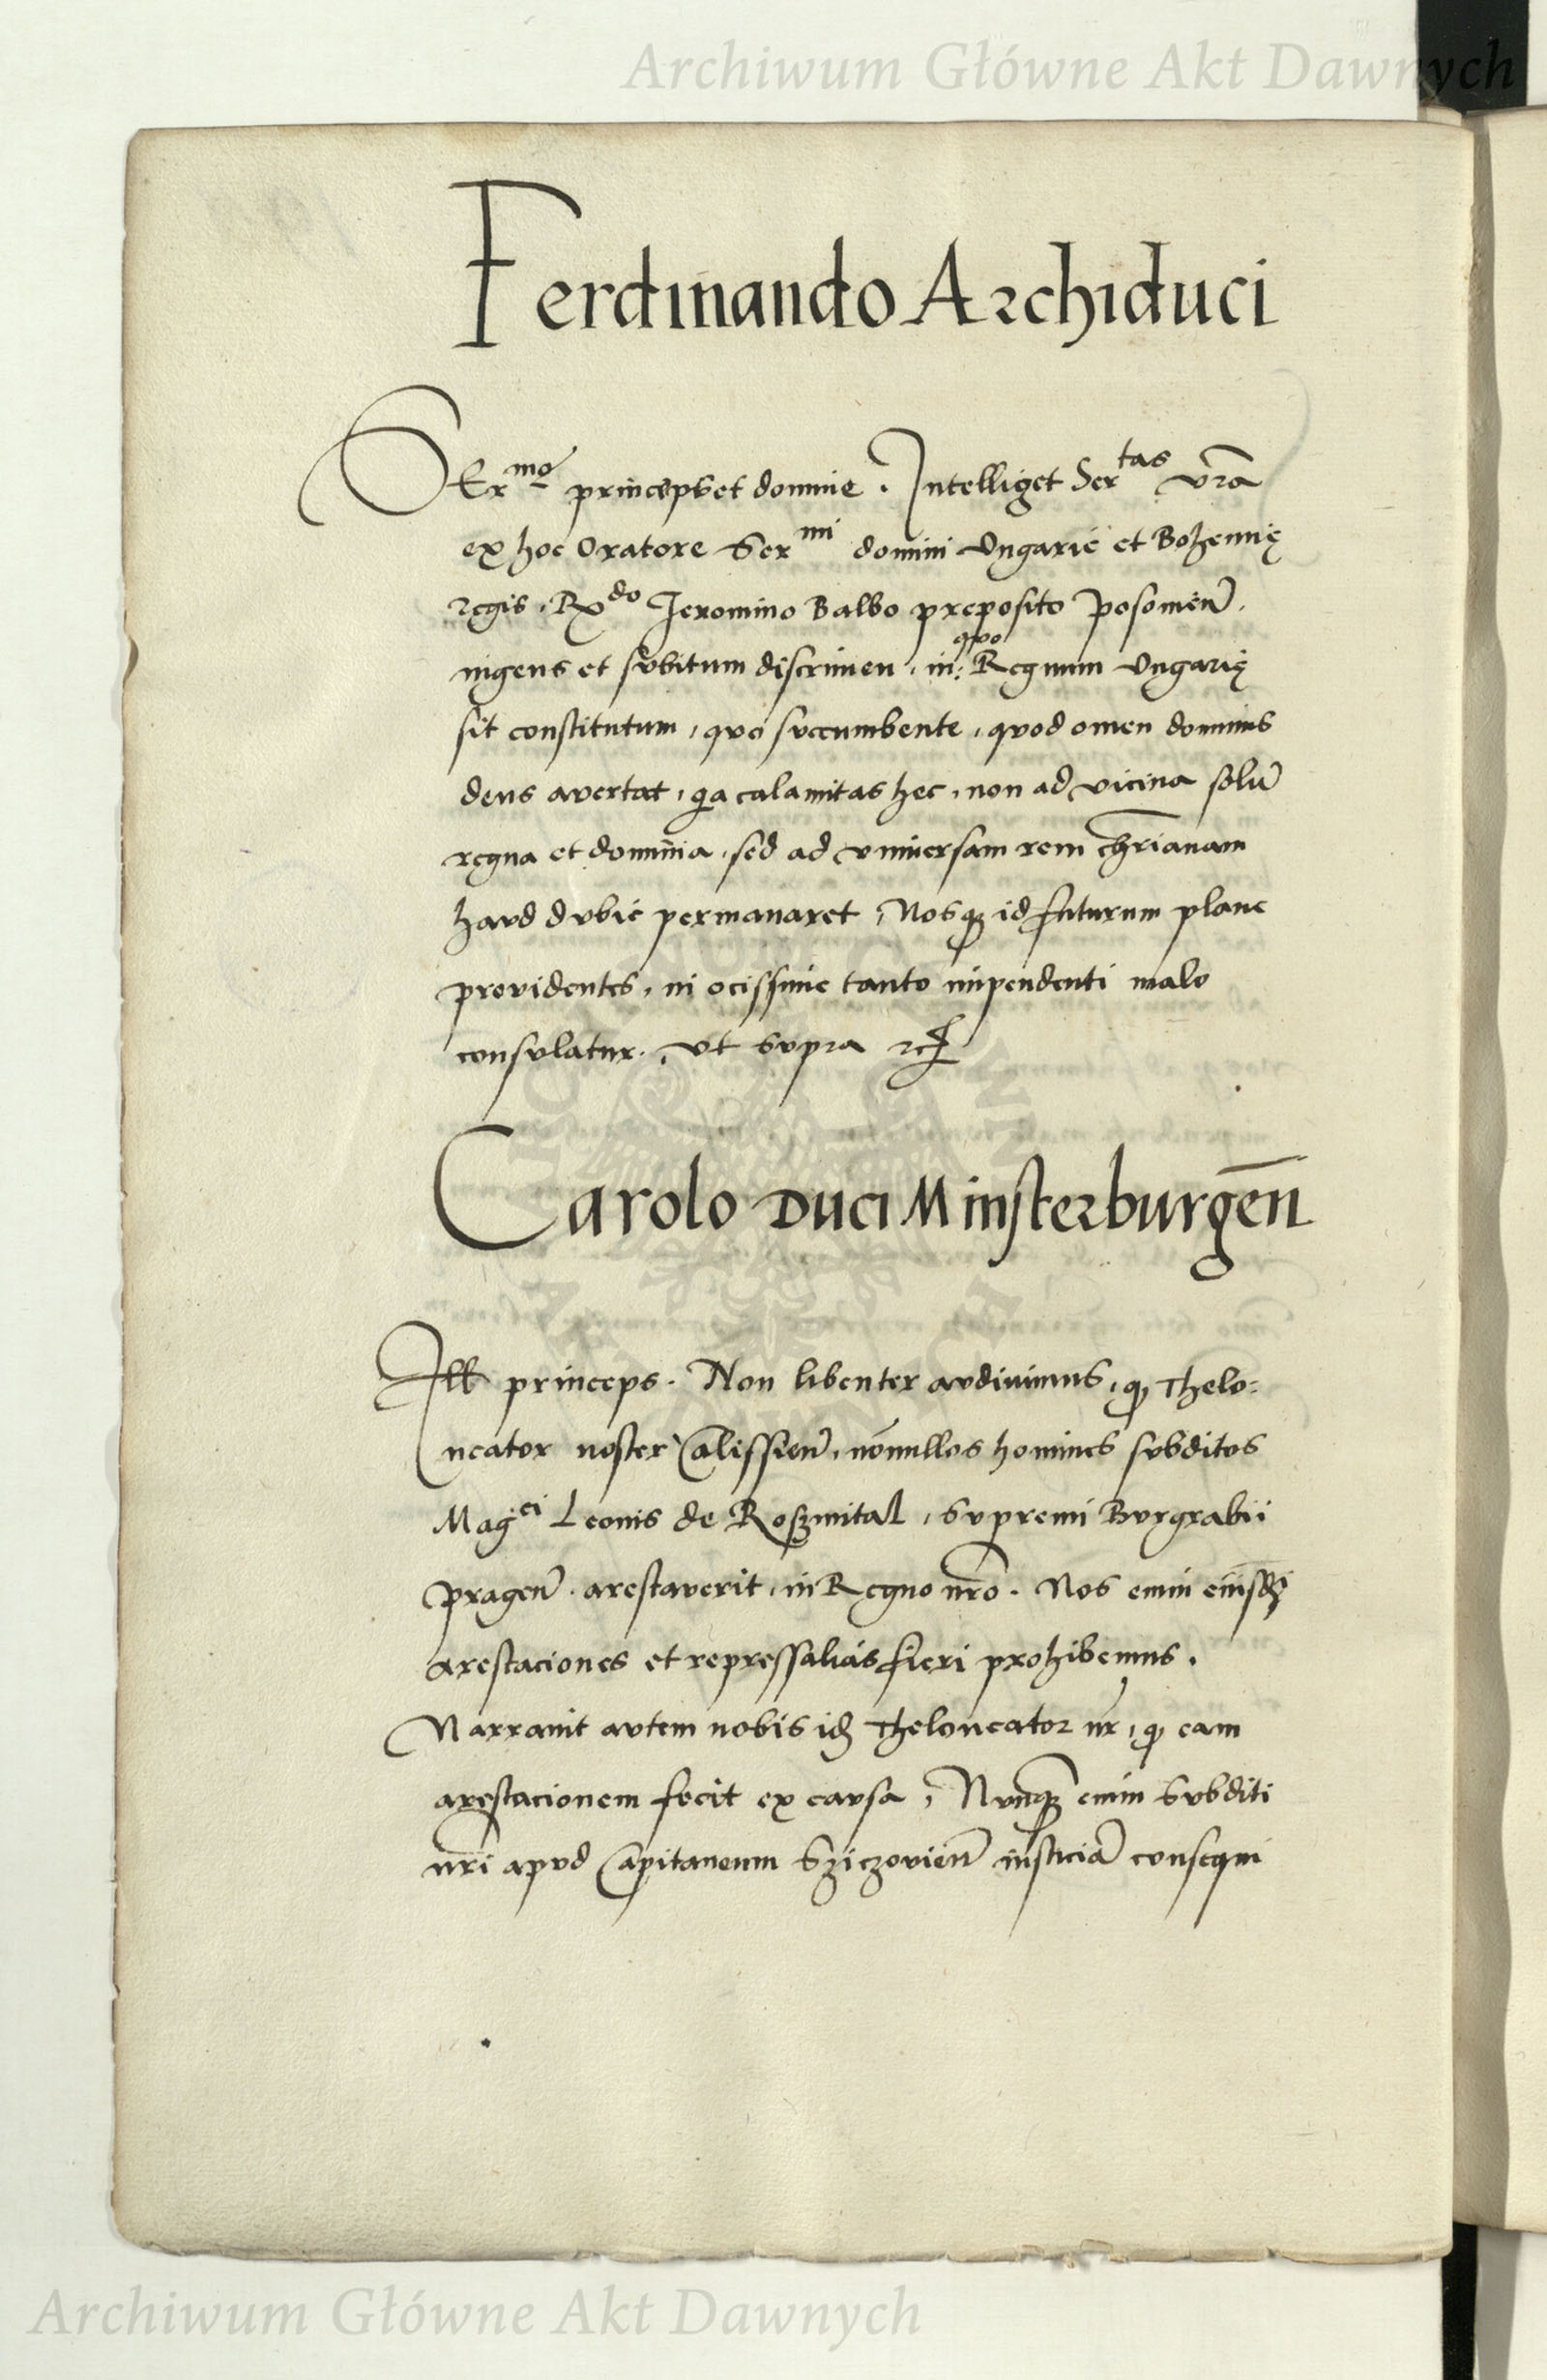 Archiwum Główne Akt Dawnych
Ferdinando Archiduci
SEr^me princeps et domine. Intelliget Ser^tas vr̄a
ex hoc Oratore Ser^mi domini Vngarie et Bohemię
regis. R^do Jeronimo Balbo preposito Posonieñ.
ingens et subitum discrimen, in quo Regnum Vngarię
sit constitutum, quo succumbente, quod omen dominus
deus avertat, qa calamitas hec, non ad vicina solū
regna et dominia, sed ad vniversam rem chr̄ianam
haud dubie permanaret, Nosq; id futurum plane
providentes, ni ocissime tanto impendenti malo
consulatur. vt supra rc̄
Carolo Duci Minsterburgēn
Ill. princeps. Non libenter audivimus, q Thelo:
neator noster Calissieñ, nōnullos homines subditos
Mag^ci Leonis de Roszmital, supremi Burgrabii
Prageñ. arestaverit, in Regno nr̄o. Nos enim eiusdē
arestaciones et repressalias fieri prohibemus.
Narravit autem nobis idē Theloneator nr̄, q eam
arestacionem fecit ex causa, Nunq̄ enim subditi
nr̄i apud Capitaneum Sziczovieñ iusticiā consequi
Archiwum Główne Akt Dawnych